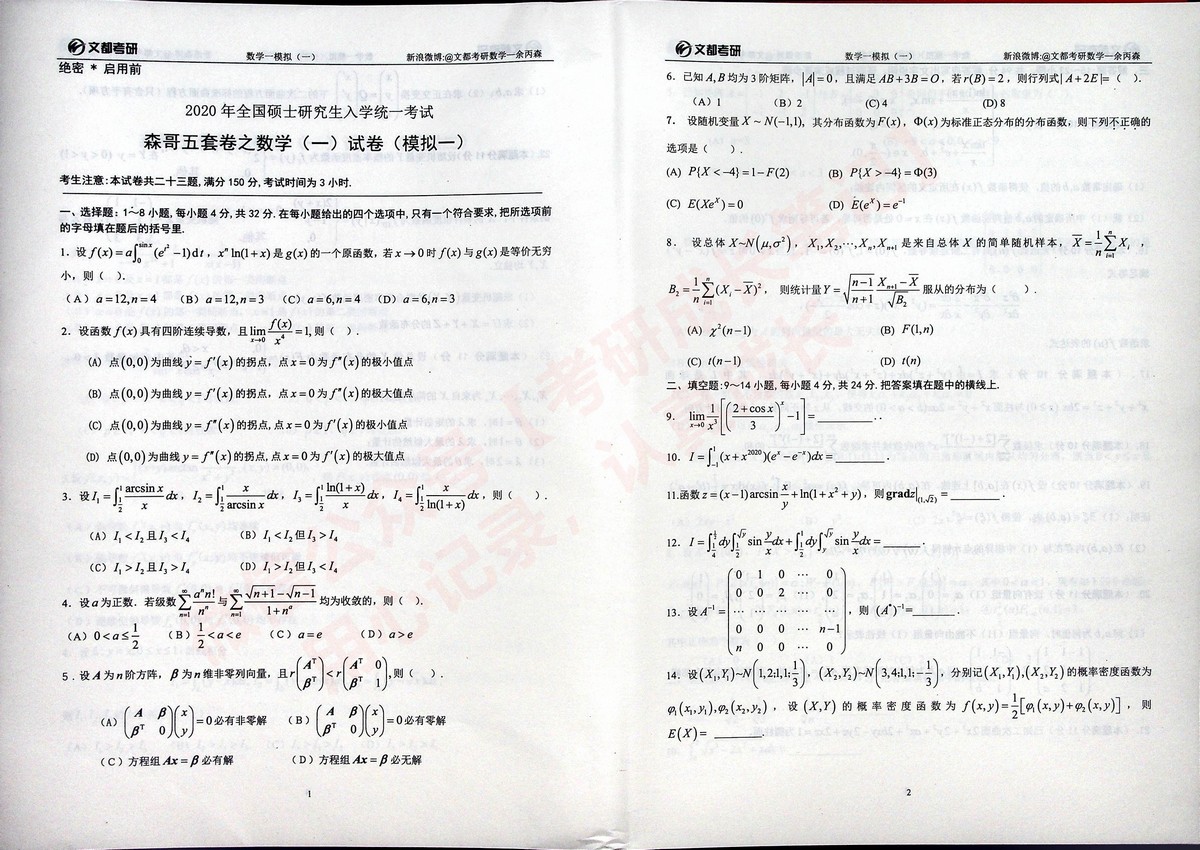 文都考研
数学一模拟（一） 新浪微博:@文都考研数学一余丙森
绝密 * 启用前
2020 年全国硕士研究生入学统一考试
森哥五套卷之数学（一）试卷（模拟一）
考生注意:本试卷共二十三题,满分 150 分,考试时间为 3 小时.
一、选择题: 1～8 小题,每小题 4 分,共 32 分.在每小题给出的四个选项中,只有一个符合要求,把所选项前
的字母填在题后的括号里.
1. 设 f(x)=a∫₀^{sin x}(e^{t²}−1)dt，xⁿ ln(1+x) 是 g(x) 的一个原函数，若 x→0 时 f(x) 与 g(x) 是等价无穷
小，则（ ）.
（A）a=12,n=4 （B）a=12,n=3 （C）a=6,n=4 （D）a=6,n=3
2. 设函数 f(x) 具有四阶连续导数，且 lim_{x→0} f(x)/x⁴ =1, 则（ ）.
(A) 点(0,0)为曲线 y=f′(x) 的拐点，点 x=0 为 f″(x) 的极小值点
(B) 点(0,0)为曲线 y=f′(x) 的拐点，点 x=0 为 f″(x) 的极大值点
(C) 点(0,0)为曲线 y=f″(x) 的拐点,点 x=0 为 f′(x) 的极小值点
(D) 点(0,0)为曲线 y=f″(x) 的拐点,点 x=0 为 f′(x) 的极大值点
3. 设 I₁=∫_{1/2}^{1} (arcsin x)/x dx，I₂=∫_{1/2}^{1} x/(arcsin x) dx，I₃=∫_{1/2}^{1} ln(1+x)/x dx，I₄=∫_{1/2}^{1} x/ln(1+x) dx，则（ ）.
（A）I₁<I₂ 且 I₃<I₄ （B）I₁<I₂ 但 I₃>I₄
（C）I₁>I₂ 且 I₃>I₄ （D）I₁>I₂ 但 I₃<I₄
4. 设 a 为正数．若级数 ∑_{n=1}^{∞} aⁿn!/nⁿ 与 ∑_{n=1}^{∞} (√(n+1)−√(n−1))/(1+nᵃ) 均为收敛的，则（ ）.
（A）0<a≤1/2 （B）1/2<a<e （C）a=e （D）a>e
5．设 A 为 n 阶方阵，β 为 n 维非零列向量，且 r(Aᵀ; βᵀ) < r(Aᵀ 0; βᵀ 1), 则（ ）.
（A）(A β; βᵀ 0)(x; y)=0 必有非零解 （B）(A β; βᵀ 0)(x; y)=0 必有零解
（C）方程组 Ax=β 必有解 （D）方程组 Ax=β 必无解
1
文都考研
数学一模拟（一） 新浪微博:@文都考研数学一余丙森
6. 已知 A,B 均为 3 阶矩阵，|A|=0，且满足 AB+3B=O，若 r(B)=2，则行列式|A+2E|=（ ）.
（A）1 （B）2 （C）4 （D）8
7. 设随机变量 X～N(−1,1)，其分布函数为 F(x)，Φ(x) 为标准正态分布的分布函数，则下列不正确的
选项是（ ）.
(A) P{X<−4}=1−F(2) (B) P{X>−4}=Φ(3)
(C) E(Xe^X)=0 (D) E(e^X)=e^{−1}
8. 设总体 X~N(μ,σ²)，X₁,X₂,⋯,Xₙ,Xₙ₊₁ 是来自总体 X 的简单随机样本，X̄=(1/n)∑_{i=1}^{n}Xᵢ，
B₂=(1/n)∑_{i=1}^{n}(Xᵢ−X̄)²，则统计量 Y=√((n−1)/(n+1)) (Xₙ₊₁−X̄)/√B₂ 服从的分布为（ ）.
(A) χ²(n−1) (B) F(1,n)
(C) t(n−1) (D) t(n)
二、填空题:9～14 小题,每小题 4 分,共 24 分.把答案填在题中的横线上.
9. lim_{x→0} (1/x³)[((2+cos x)/3)^x −1]=________.
10. I=∫_{−1}^{1}(x+x^{2020})(e^x−e^{−x})dx=________.
11.函数 z=(x−1)arcsin(x/y)+ln(1+x²+y)，则 gradz|_{(1,√2)}=________.
12. I=∫_{1/4}^{1/2}dy∫_{1/2}^{√y} sin(y/x)dx+∫_{1/2}^{1}dy∫_{y}^{√y} sin(y/x)dx=________.
13. 设 A^{−1}=(0 1 0 ⋯ 0; 0 0 2 ⋯ 0; ⋯ ⋯ ⋯ ⋯ ⋯; 0 0 0 ⋯ n−1; n 0 0 ⋯ 0)，则 (A*)^{−1}=________.
14. 设(X₁,Y₁)~N(1,2;1,1;1/3)，(X₂,Y₂)~N(3,4;1,1;−1/3)，分别记(X₁,Y₁),(X₂,Y₂)的概率密度函数为
φ₁(x₁,y₁),φ₂(x₂,y₂)，设(X,Y)的概率密度函数为 f(x,y)=(1/2)[φ₁(x,y)+φ₂(x,y)]，则
E(X)=________.
2